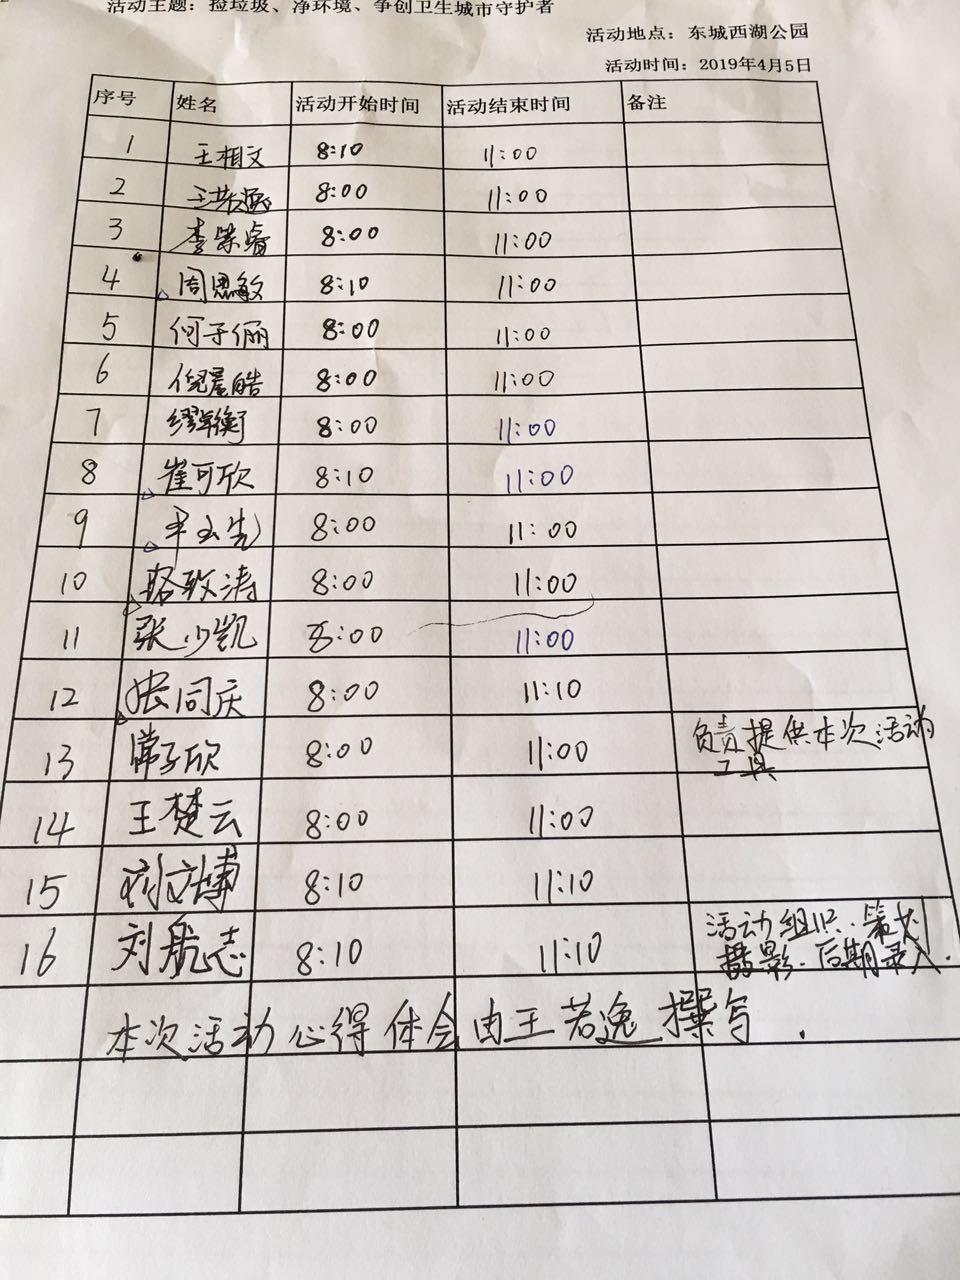 活动主题：捡垃圾、净环境、争创卫生城市守护者
活动地点：东城西湖公园
活动时间：2019年4月5日
序号 姓名 活动开始时间 活动结束时间 备注
1 王相文 8:10 11:00
2 8:00 11:00
3 李荣睿 8:00 11:00
4 周思敏 8:10 11:00
5 何子俪 8:00 11:00
6 倪星皓 8:00 11:00
7 8:00 11:00
8 崔可欣 8:10 11:00
9 8:00 11:00
10 骆致涛 8:00 11:00
11 张少凯 8:00 11:00
12 张同庆 8:00 11:10
13 常子欣 8:00 11:00 负责提供本次活动
工具
14 王楚云 8:00 11:00
15 刘文博 8:10 11:10
16 刘航志 8:10 11:10 活动组织.策划
摄影.后期录入.
本次活动心得体会由王若逸撰写.